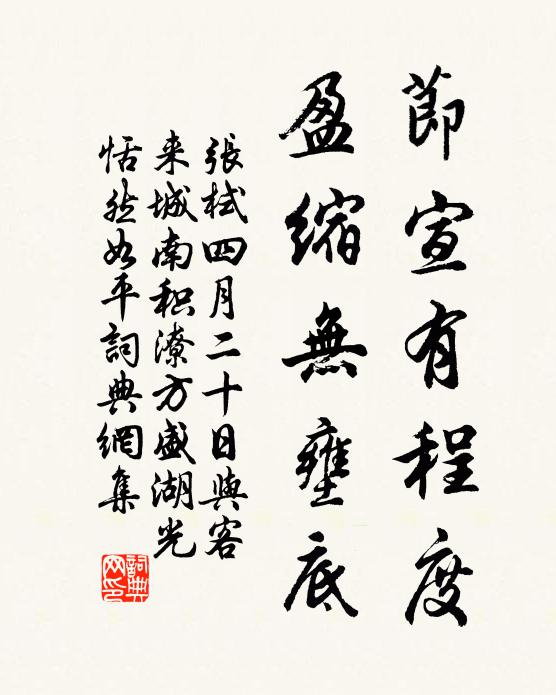 節宣有程度
盈缩無壅底
張栻四月二十日與客
来城南积潦方盛湖光
恬然如平詞典網集
詞典网印